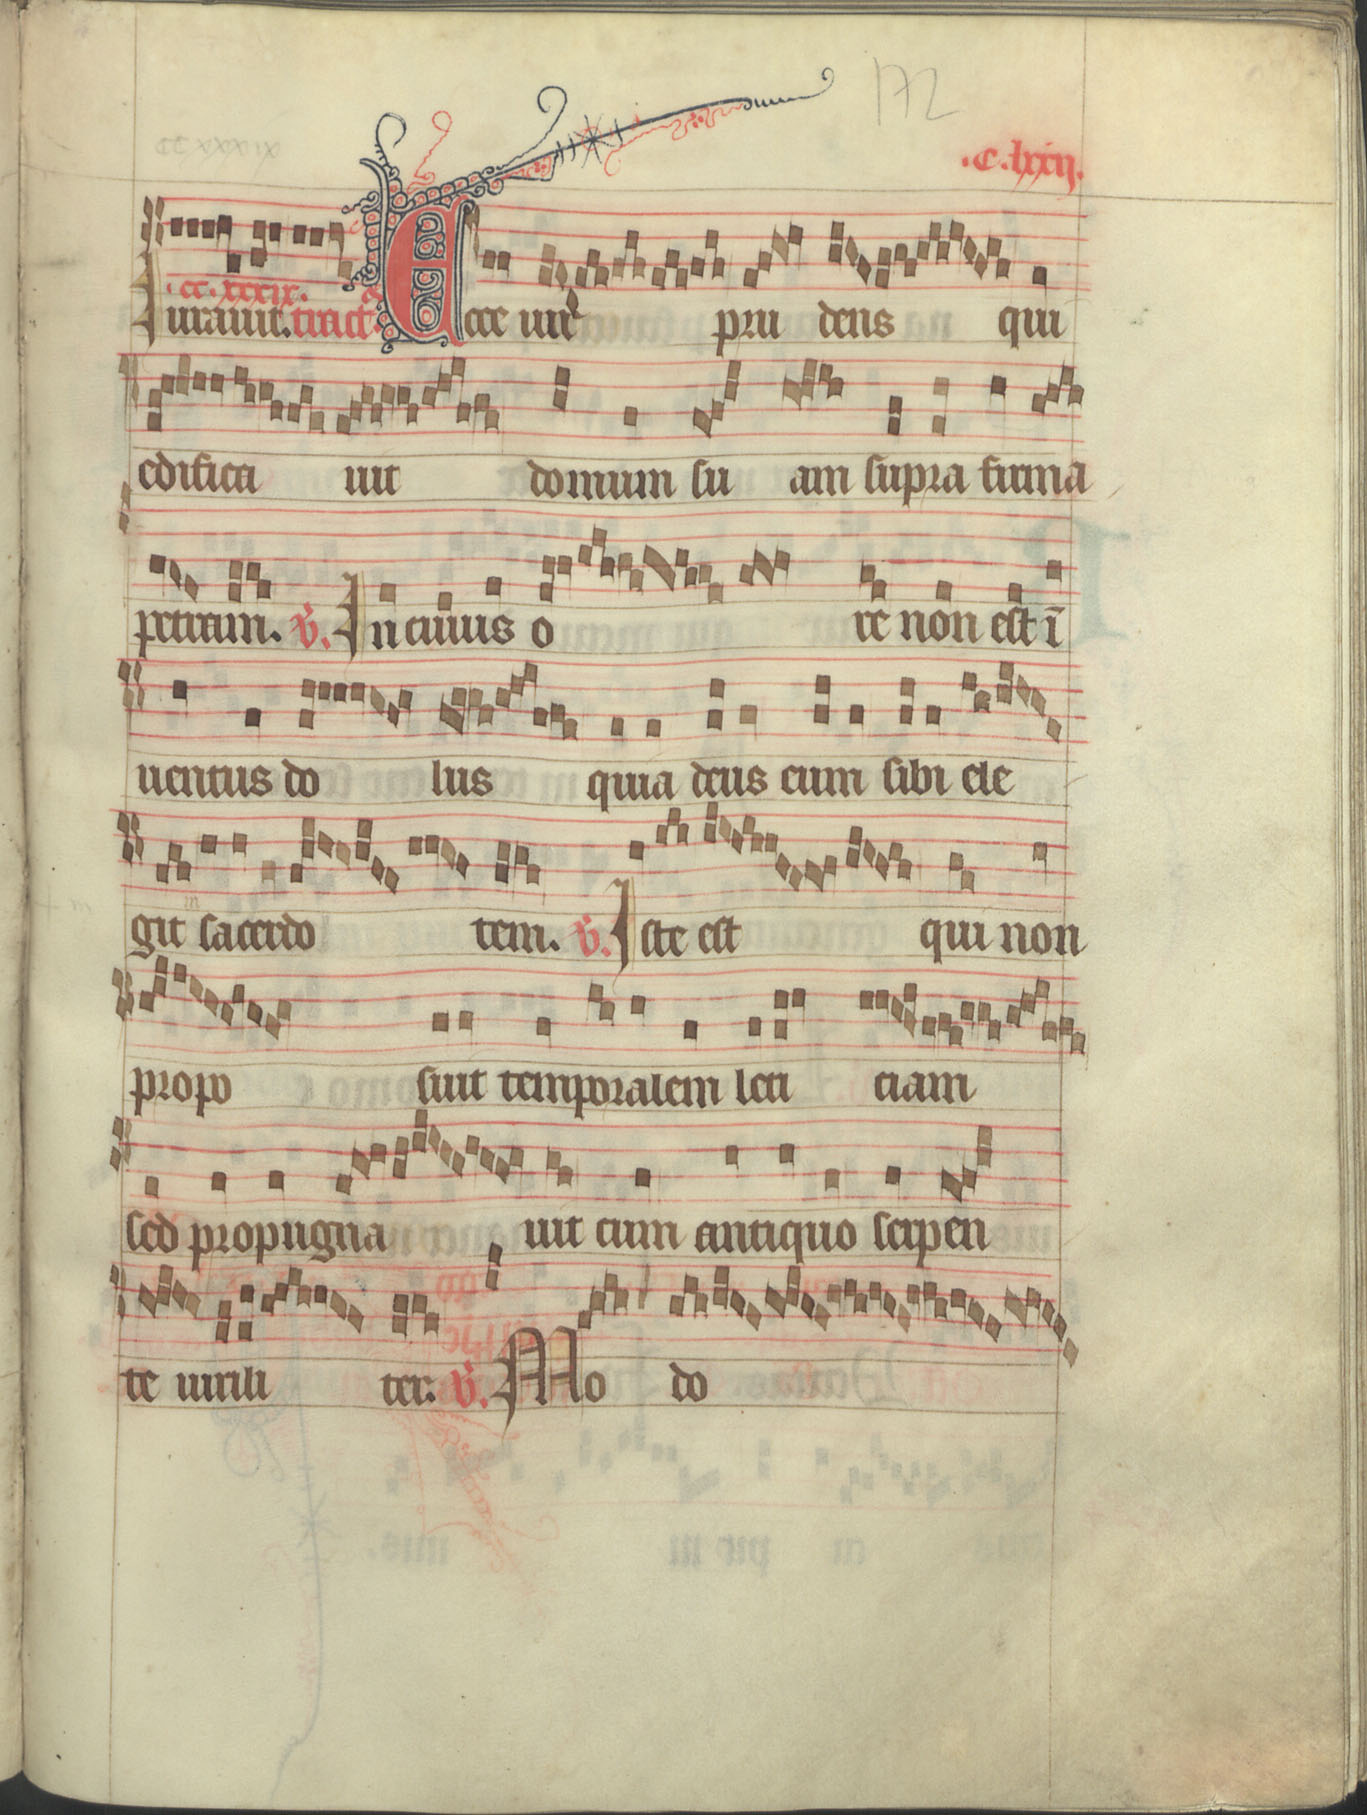 172
.C.lxxij.
.cc.xxxix.
Iurauit. tract. Ecce uir pru dens qui
edifica uit domum su am supra firma
petram. V. In cuius o re non est ī
uentus do lus quia deus eum sibi ele
git sacerdo tem. V. Iste est qui non
propo suit temporalem leti ciam
sed propugna uit cum antiquo serpen
te uirili ter. V. Mo do